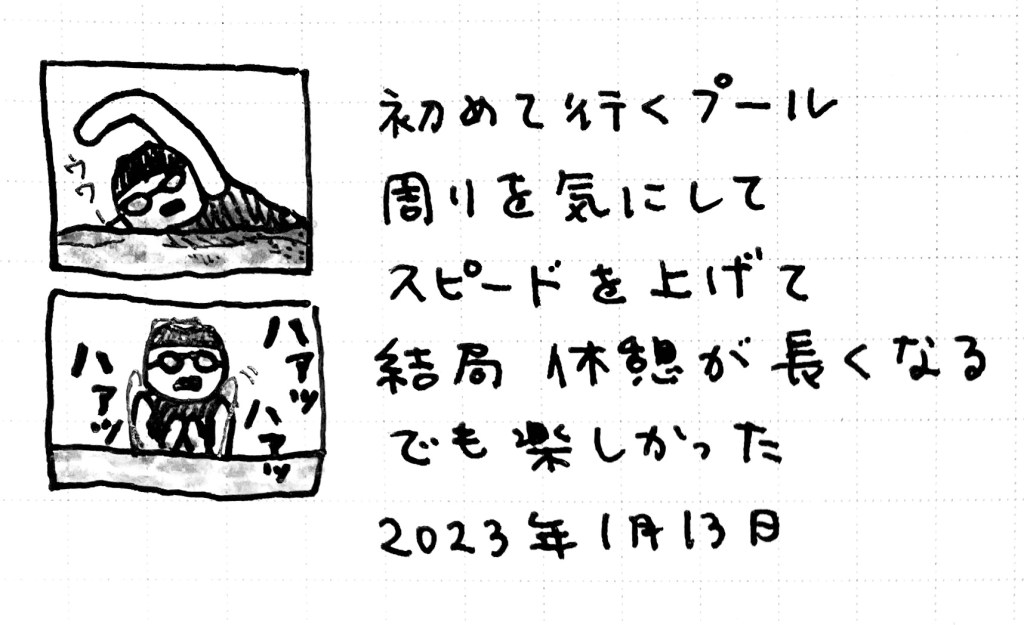 ウワー
ハアッ
ハアッ
ハアッ
初めて行くプール
周りを気にして
スピードを上げて
結局 休憩が長くなる
でも楽しかった
2023年1月13日